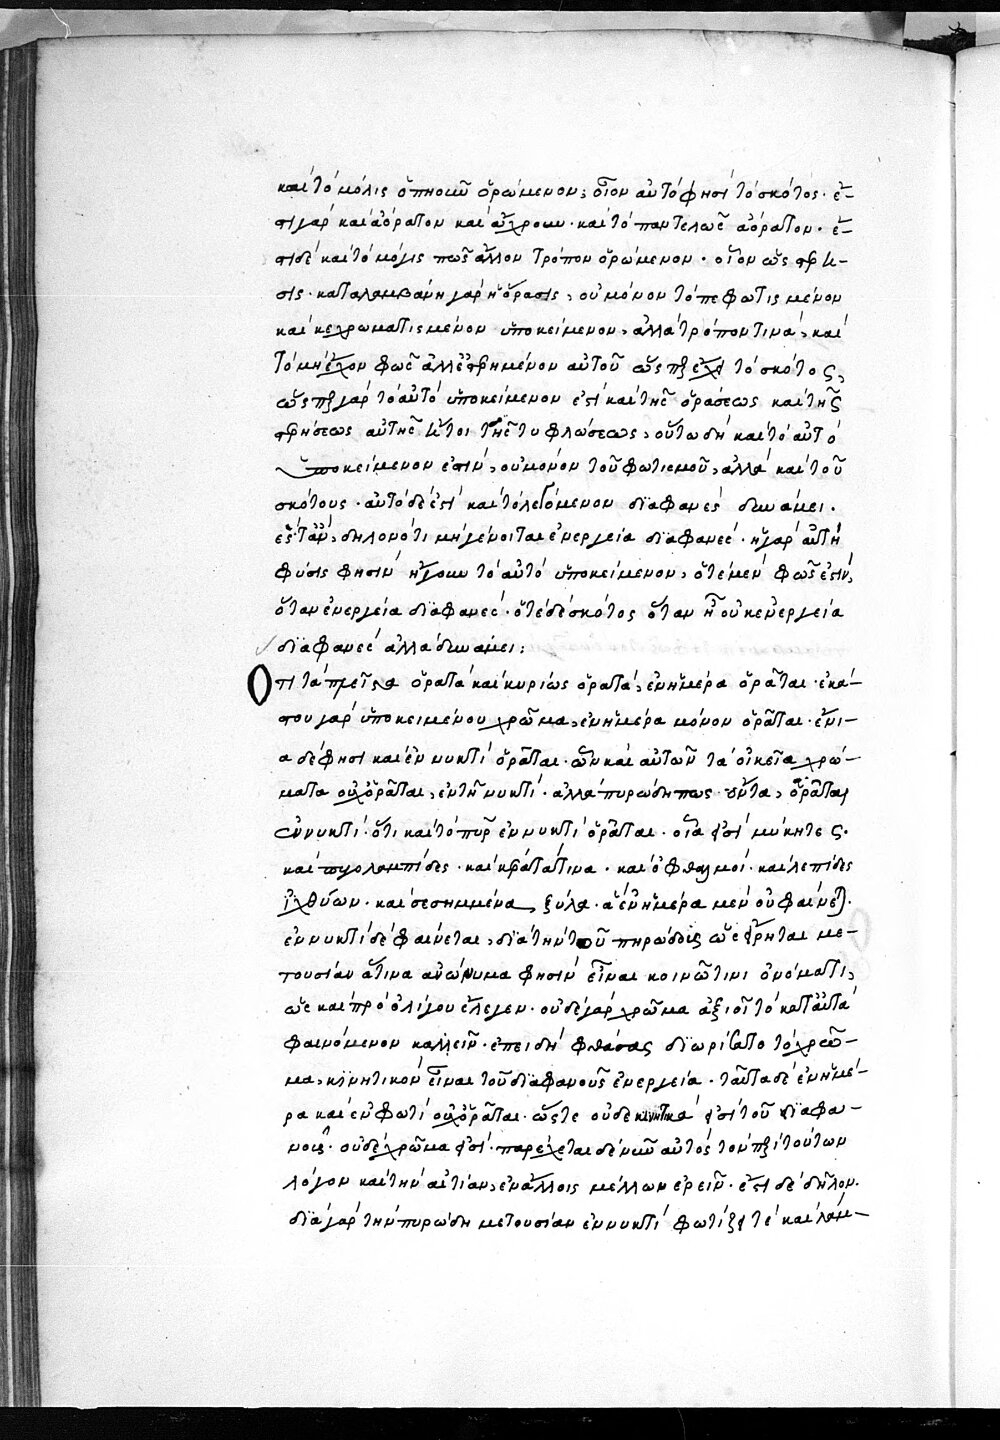 καὶ τὸ μόλις ὁπηοῦν ὁρώμενον, οἷον αὐτὸ φησὶ τὸ σκότος· ἔ-
στι γὰρ καὶ ἀόρατον καὶ ἄχρουν· καὶ τὸ παντελῶς ἀόρατον· ἔ-
στι δὲ καὶ τὸ μόγις πως ἄλλον τρόπον ὁρώμενον· οἷον ὡς στέρη-
σις· καταλαμβάνη γὰρ ἡ ὅρασις, οὐ μόνον τὸ πεφωτισμένον
καὶ κεχρωματισμένον ὑποκείμενον, ἀλλὰ τρόπον τινὰ, καὶ
τὸ μὴ ἔχον φῶς ἀλλ' ἐστερημένον αὐτοῦ ὥσπερ ἔχει τὸ σκότος,
ὥσπερ γὰρ τὸ αὐτὸ ὑποκείμενον ἐστὶ καὶ τῆς ὁράσεως καὶ τῆς
στερήσεως αὐτῆς ἤτοι τῆς τυφλώσεως, οὕτω δὴ καὶ τὸ αὐτὸ
ὑποκείμενον ἐστὶν, οὐ μόνον τοῦ φωτισμοῦ, ἀλλὰ καὶ τοῦ
σκότους· αὐτὸ δέ ἐστι καὶ τὸ λεγόμενον διαφανὲς δυνάμει·
ἔστ' ἂν, δηλονότι μὴ γένοιται ἐνεργεία διαφανές· ἡ γὰρ αὐτὴ
φύσις φησὶν ἤγουν τὸ αὐτὸ ὑποκείμενον, ὅτε μὲν φῶς ἐστὶν,
ὅταν ἐνεργεία διαφανές· ὅτε δὲ σκότος ὅταν ᾖ οὐκ ἐνεργεία
διαφανὲς ἀλλὰ δυνάμει:
Ὅτι τὰ πλεῖστα ὁρατὰ καὶ κυρίως ὁρατὰ, ἐν ἡμέρα ὁρᾶται· ἑκά-
στου γὰρ ὑποκειμένου χρῶμα, ἐν ἡμέρα μόνον ὁρᾶται· ἔνι-
α δέ φησι καὶ ἐν νυκτὶ ὁρᾶται· ὧν καὶ αὐτῶν τὰ οἰκεῖα χρώ-
ματα οὐχ ὁρᾶται, ἐν τῆ νυκτί· ἀλλὰ πυρώδη πως ὄντα, ὁρᾶται
ἐν νυκτί· ὅτι καὶ τὸ πῦρ ἐν νυκτὶ ὁρᾶται· οἷά εἰσὶ μύκητες·
καὶ πυγολαμπίδες· καὶ κέρατά τινα· καὶ ὀφθαλμοὶ· καὶ λεπίδες
ἰχθύων· καὶ σεσημμένα ξύλα· ἃ ἐν ἡμέρα μὲν οὐ φαίνεται·
ἐν νυκτὶ δὲ φαίνεται, διὰ τὴν τοῦ πηρώδους ὡς εἴρηται με-
τουσίαν ἅτινα ἀνώνυμα φησὶν εἶναι κοινῶ τινι ὀνόματι,
ὡς καὶ πρὸ ὀλίγου ἔλεγεν· οὐδὲ γὰρ χρῶμα ἀξιοῖ τὸ κατ' αὐτὰ
φαινόμενον καλεῖν· ἐπειδὴ φθάσας διωρίσατο τὸ χρῶ-
μα, κινητικὸν εἶναι τοῦ διαφανοῦς ἐνεργεία· ταῦτα δὲ ἐν ἡμέ-
ρα καὶ ἐν φωτὶ οὐχ ὁρᾶται· ὥστε οὐδὲ κινητικά εἰσι τοῦ διαφα-
νοῦς· οὐδὲ χρῶμα εἰσὶ· παρέχεται δὲ νῦν αὐτὸς τὸν περὶ τούτων
λόγον καὶ τὴν αἰτίαν, ἐν ἄλλοις μέλλων ἐρεῖν· ἔστι δὲ δῆλον·
διὰ γὰρ τὴν πυρώδη μετουσίαν ἐν νυκτὶ φωτίζει τὲ καὶ λάμ-